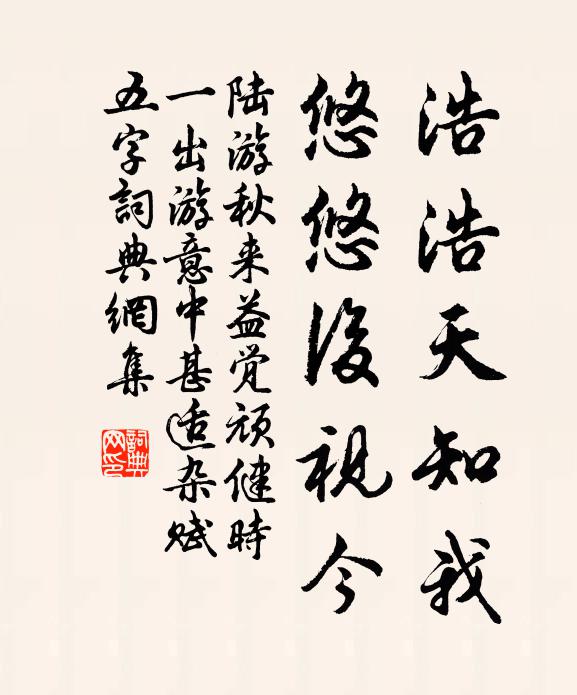 浩浩天知我
悠悠後視今
陆游秋来益觉顽健時
一出游意中甚适杂赋
五字詞典網集
詞典网印